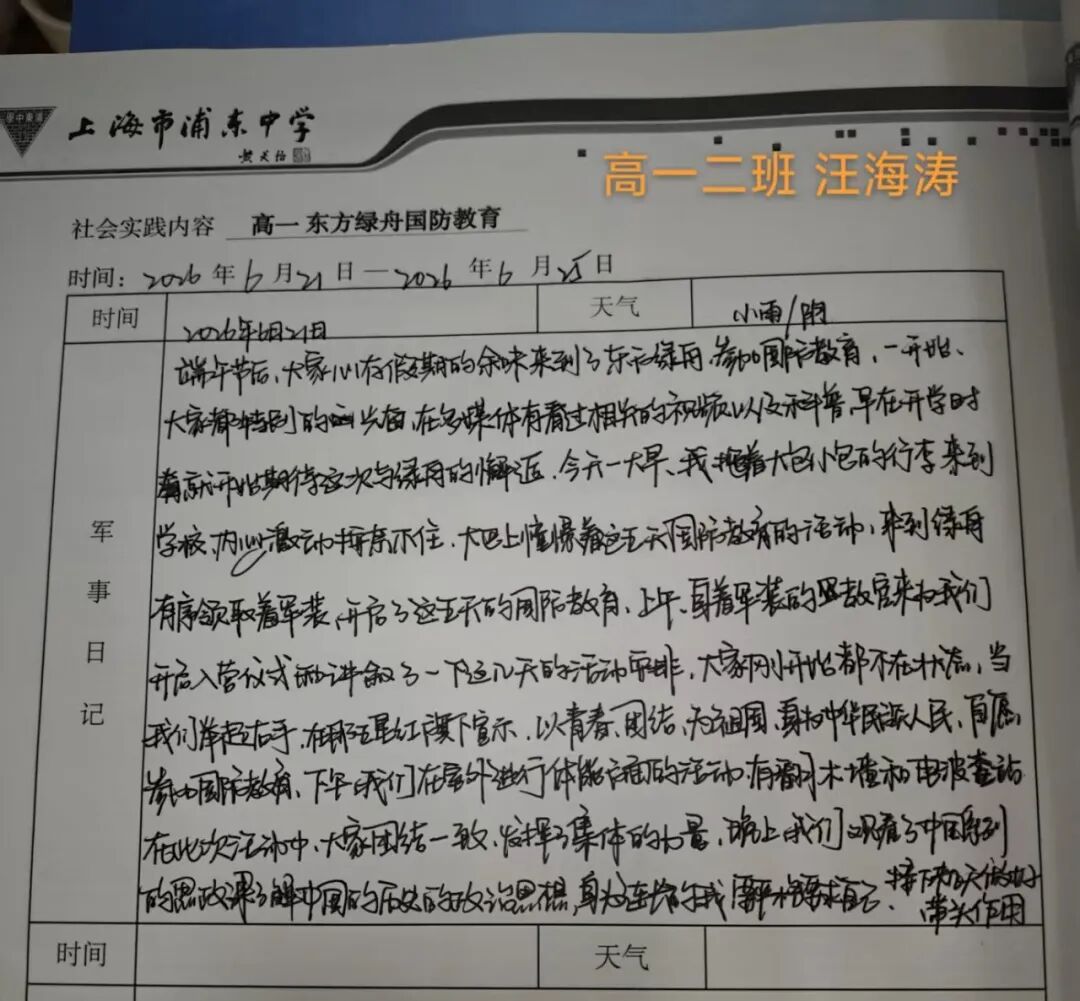 浦东中学
上海市浦东中学
高一二班 汪海涛
社会实践内容 高一 东方绿舟国防教育
时间：2026年6月21日—2026年6月25日
时间 2026年6月21日 天气 小雨/阴
军事日记
端午节后，大家心存假期的余味来到了东方绿舟，参加国防教育，一开始、
大家都特别的兴奋，在多媒体有看过相关的视频以及科普，早在开学时
就开始期待这次与绿舟的邂逅。今天一大早、我拖着大包小包的行李来到
学校，内心激动按奈不住，大巴上憧憬着这五天国防教育的活动，来到绿舟
有序领取着军装，开启了这五天的国防教育，上午、身着军装的教官来为我们
开启入营仪式 讲叙了一下这几天的活动安排，大家刚开始都不在状态，当
我们举起右手，在那五星红旗下宣示，以青春、团结，为祖国，身为中华民族人民，自愿
参加国防教育，下午我们在室外进行体能方面的活动，有翻木墙和电波查站
在此次活动中，大家团结一致，发挥了集体的力量，晚上我们观看了中国系列
的思政课了解中国的历史的政治思想，身为连长的我 要严格要求自己、接下来几天做好
带头作用
时间 天气